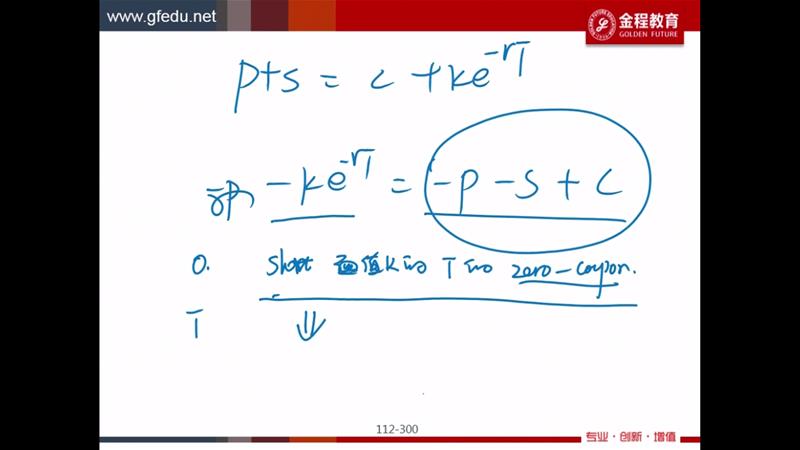 www.gfedu.net
金程教育
GOLDEN FUTURE
p+s = c + ke^{-rT}
-ke^{-rT} = -p - s + c
0. Short 面值K的 T的 zero-coupon.
T ⇓
112-300
专业·创新·增值